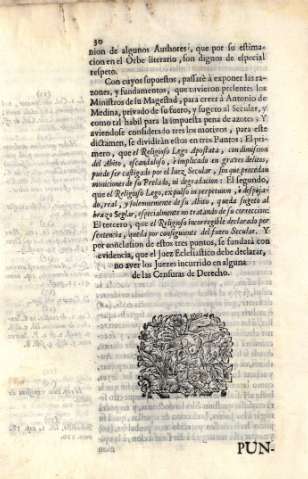 30
nion de algunos Authores, que por su estima-
cion en el Orbe literario, son dignos de especial
respeto.
Con cuyos supuestos, passarè à exponer las ra-
zones, y fundamentos, que tuvieron presentes los
Ministros de su Magestad, para creer à Antonio de
Medina, privado de su fuero, y sugeto al Secular, y
como tal habil para la impuesta pena de azotes: Y
aviendose considerado tres los motivos, para este
dictamen, se dividiràn estos en tres Puntos: El pri-
mero, que el Religioso Lego Apostata, con dimission
del Abito, escandaloso, è implicado en graves delitos,
puede ser castigado por el Juez Secular, sin que precedan
moniciones de su Prelado, ni degradacion: El segundo,
que el Religioso Lego, expulso in perpetuum, y despoja-
do, real, y solemnemente de su Abito, queda sugeto al
brazo Seglar, especialmente no tratando de su correccion:
El tercero, que el Religioso incorregible declarado por
sentencia, queda por consiguiente del fuero Secular. Y
por conclusion de estos tres puntos, se fundarà con
evidencia, que el Juez Eclesiastico debe declarar,
no aver los Juezes incurrido en alguna
de las Censuras de Derecho.
PUN-